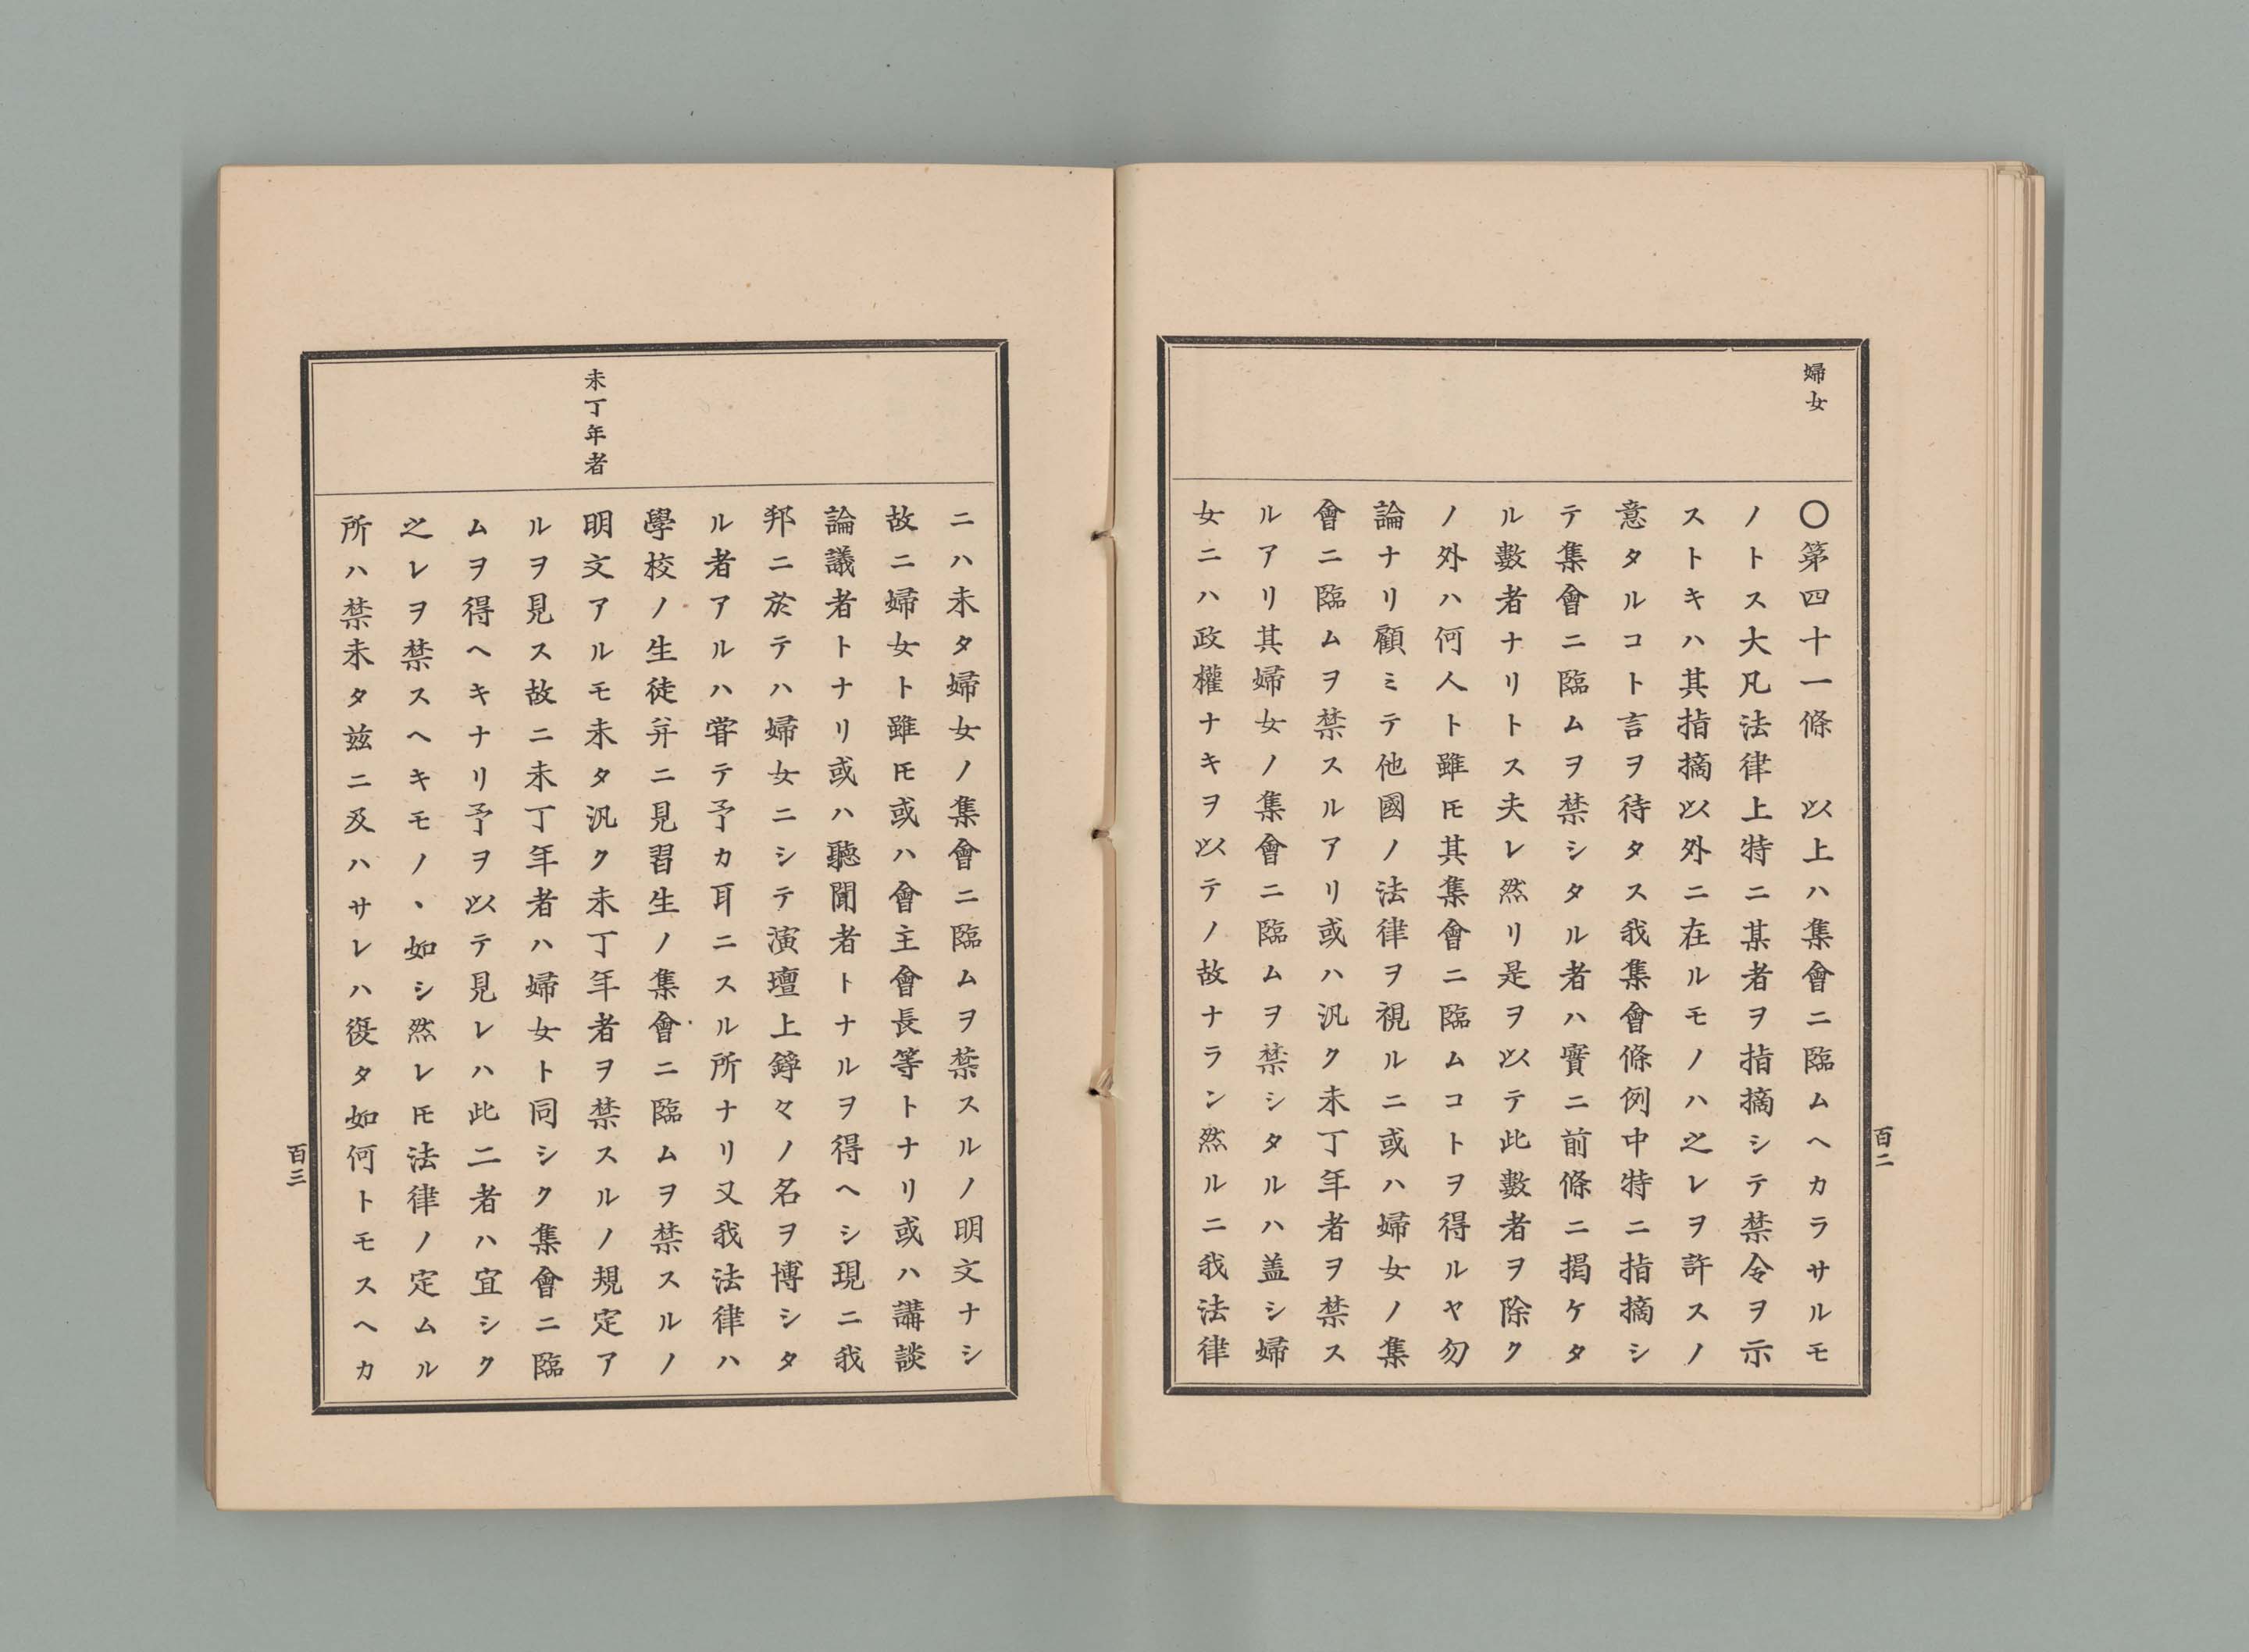 婦女
〇第四十一條　以上ハ集會ニ臨ムヘカラサルモ
ノトス大凡法律上特ニ某者ヲ指摘シテ禁令ヲ示
ストキハ其指摘以外ニ在ルモノハ之レヲ許スノ
意タルコト言ヲ待タス我集會條例中特ニ指摘シ
テ集會ニ臨ムヲ禁シタル者ハ實ニ前條ニ揭ケタ
ル數者ナリトス夫レ然リ是ヲ以テ此數者ヲ除ク
ノ外ハ何人ト雖𪜈其集會ニ臨ムコトヲ得ルヤ勿
論ナリ顧ミテ他國ノ法律ヲ視ルニ或ハ婦女ノ集
會ニ臨ムヲ禁スルアリ或ハ汎ク未丁年者ヲ禁ス
ルアリ其婦女ノ集會ニ臨ムヲ禁シタルハ盖シ婦
女ニハ政權ナキヲ以テノ故ナラン然ルニ我法律
百二
未丁年者
ニハ未タ婦女ノ集會ニ臨ムヲ禁スルノ明文ナシ
故ニ婦女ト雖𪜈或ハ會主會長等トナリ或ハ講談
論議者トナリ或ハ聽聞者トナルヲ得ヘシ現ニ我
邦ニ於テハ婦女ニシテ演壇上錚々ノ名ヲ博シタ
ル者アルハ甞テ予カ耳ニスル所ナリ又我法律ハ
學校ノ生徒幷ニ見習生ノ集會ニ臨ムヲ禁スルノ
明文アルモ未タ汎ク未丁年者ヲ禁スルノ規定ア
ルヲ見ス故ニ未丁年者ハ婦女ト同シク集會ニ臨
ムヲ得ヘキナリ予ヲ以テ見レハ此二者ハ宜シク
之レヲ禁スヘキモノヽ如シ然レ𪜈法律ノ定ムル
所ハ禁未タ玆ニ及ハサレハ復タ如何トモスヘカ
百三